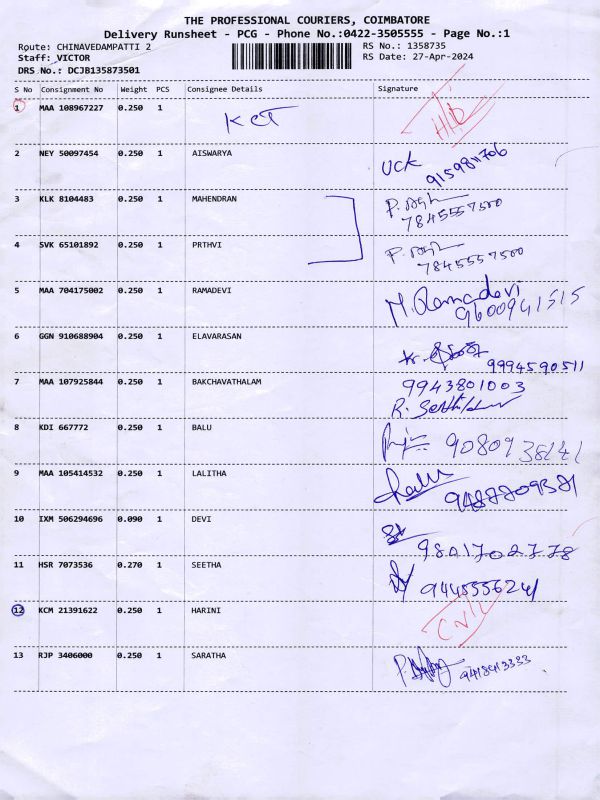 THE PROFESSIONAL COURIERS, COIMBATORE
Delivery Runsheet - PCG - Phone No.:0422-3505555 - Page No.:1
Route: CHINAVEDAMPATTI 2 RS No.: 1358735
Staff: VICTOR RS Date: 27-Apr-2024
DRS No.: DCJB135873501
S No Consignment No Weight PCS Consignee Details Signature
1 MAA 108967227 0.250 1
2 NEY 50097454 0.250 1 AISWARYA UCK
9159811706
3 KLK 8104483 0.250 1 MAHENDRAN
7845557500
4 SVK 65101892 0.250 1 PRTHVI
7845557500
5 MAA 704175002 0.250 1 RAMADEVI M. Ramadevi
9600941515
6 GGN 910688904 0.250 1 ELAVARASAN 9994590511
7 MAA 107925844 0.250 1 BAKCHAVATHALAM 9943801003
8 KDI 667772 0.250 1 BALU 9080938141
9 MAA 105414532 0.250 1 LALITHA
10 IXM 506294696 0.090 1 DEVI
9801702778
11 HSR 7073536 0.270 1 SEETHA
12 KCM 21391622 0.250 1 HARINI
13 RJP 3406000 0.250 1 SARATHA